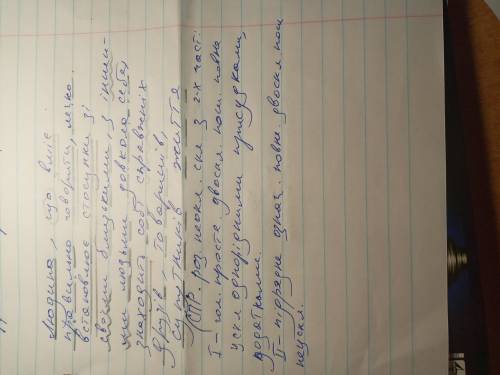 Людина, що вміє
правильно говорити, легко
встановлює стосунки зі
своїми близькими, з інши-
ми людьми довкола себе,
знаходить собі справжніх
друзів, товаришів,
супутників життя
(СПР. роз. неокл. скл. з 2-х част.
I – гол. просте двоскл. пош. повне
ускл. однорідними присудками,
додатками.
II – підрядне означ. повне двоскл. пош
неускл.